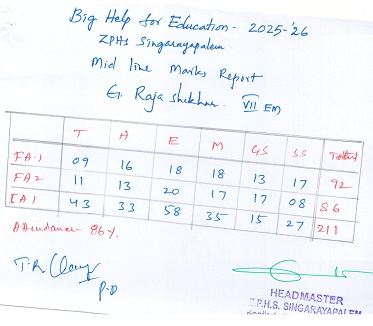 Big Help for Education - 2025-'26
ZPHS Singarayapalem
Mid line Marks Report
G. Raja shekhar - VII EM
T A E M GS SS Total
FA-1 09 16 18 18 13 17 92
FA2 11 13 20 17 17 08 86
SA1 43 33 58 35 15 27 211
Attendance - 86%.
P.D
HEADMASTER
Z.P.H.S. SINGARAYAPALEM